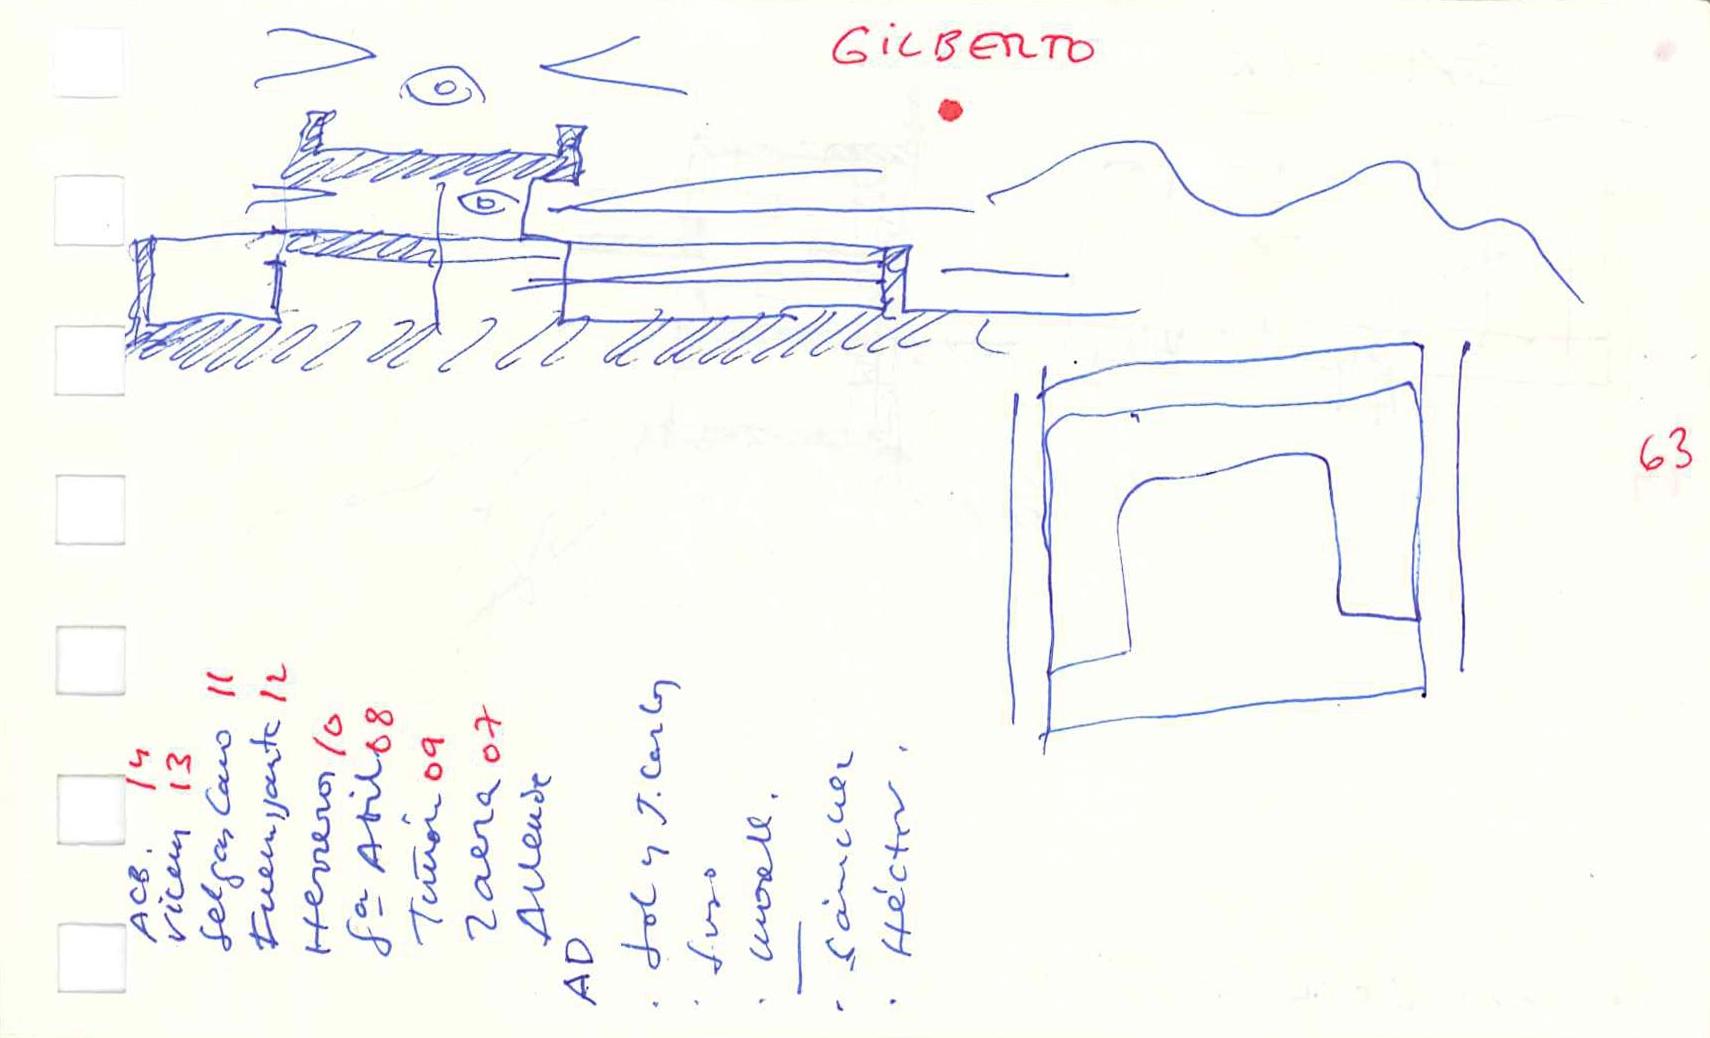 GILBERTO
63
ACB. 14
Vicens 13
Selgas Cano 11
Fuensanta 12
Herreros 10
Gª Abril 08
Tuñón 09
Zaera 07
Allende
AD
. Sol y J. Carlos
. Suso
.
. Sánchez
. Héctor.